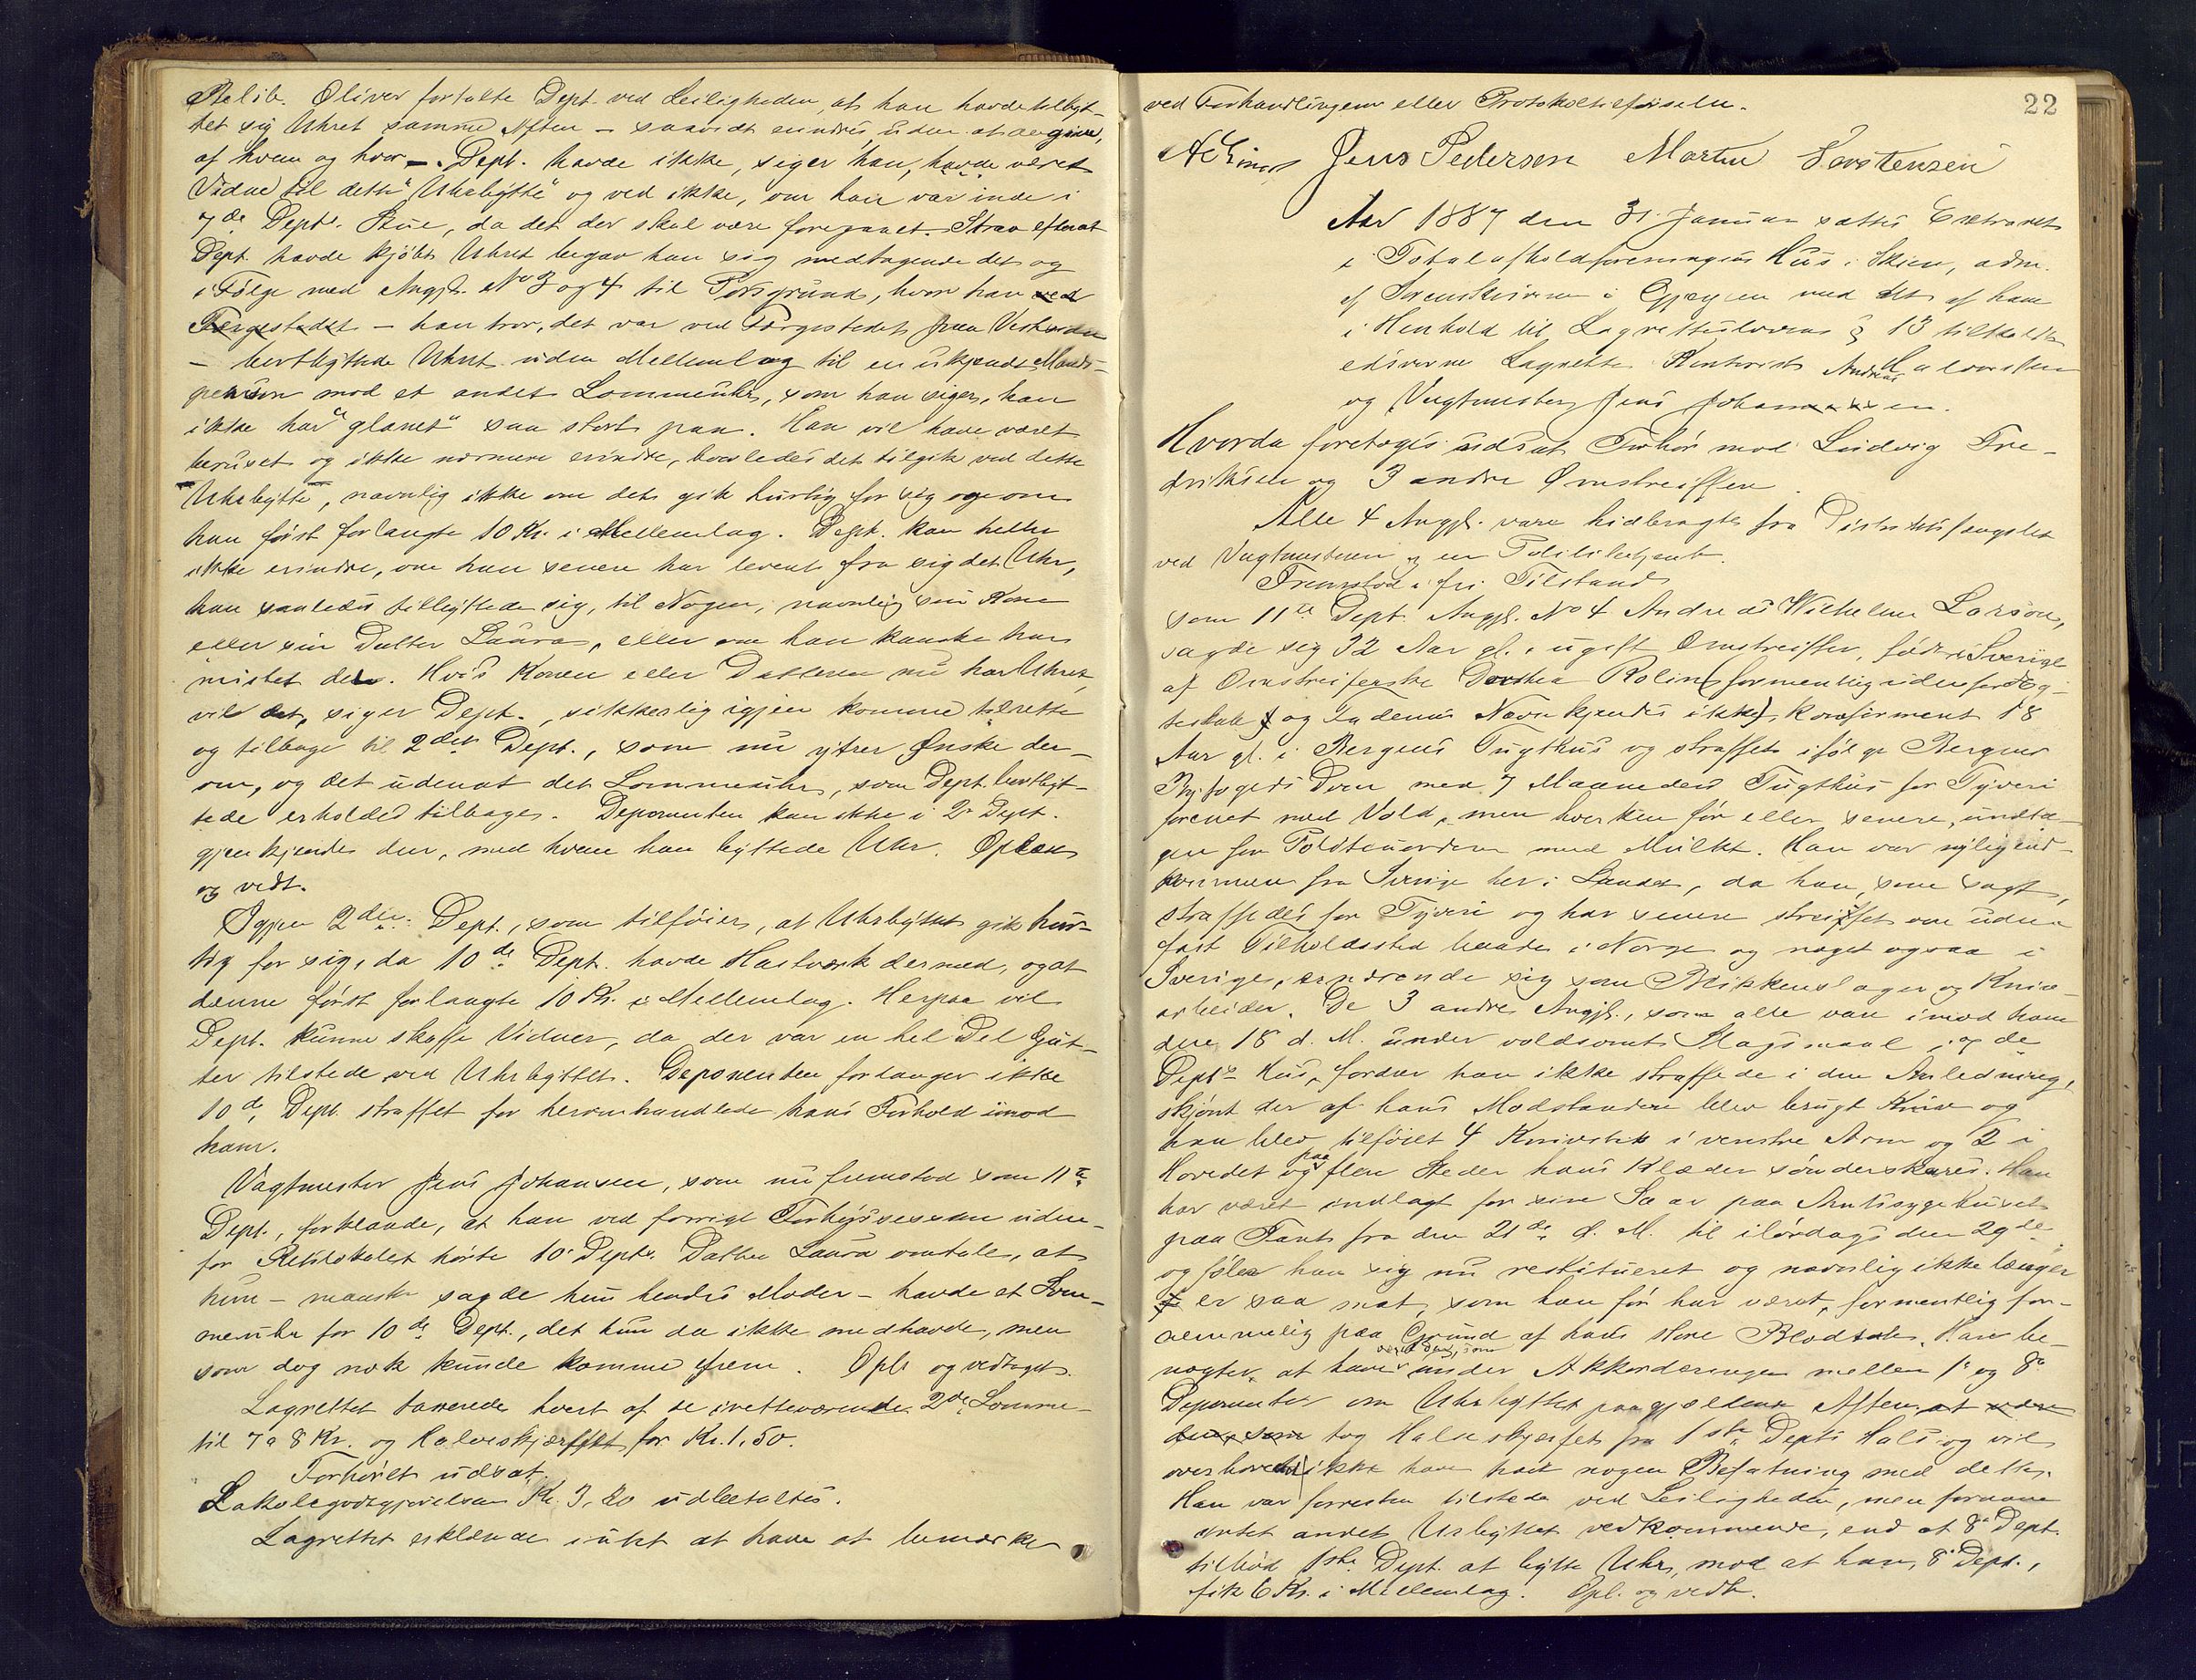 Belib. Oliver fortalte Dept. ved Leiligheden, at han havde tilbyt-
tet sig Uhret samme Aften – saavidt erindres uden at angive,
af hvem og hvor –. Dept. havde ikke, siger han, havde været
Vidne til dette "Uhrbytte" og ved ikke, om han var inde i
7de Depts. Stue, da det der skal være foregaaet. Strax efterat
Dept. havde kjöbt Uhret begav han sig medtagende det og
i Fölge med Angjl. No 3 og 4 til Porsgrund, hvor han ved
Færgestedet – han tror, det var ved Færgestedet paa Vestsiden
– bortbyttede Uhret uden Mellemlag til en ukjendt Mands-
person mod et andet Lommeuhr, som han siger, han
ikke har "glanet" saa stort paa. Han vil have været
beruset og ikke nærmere erindre, hvorledes det tilgik ved dette
"Uhrbytte", navnlig ikke om det gik hurtig for sig og om
han först forlangte 10 Kr. i Mellemlag. Dept. kan heller
ikke erindre, om han senere har leveret fra sig det Uhr,
han saaledes tilbyttede sig, til Nogen, navnlig sin Kone
eller sin Datter Laura, eller om han kanske har
mistet det. Hvis Konen eller Datteren nu har Uhret,
vil det, siger Dept., sikkerlig igjen komme tilrette
og tilbage til 2den Dept., som nu ytrer Ønske der-
om, og det udenat det Lommeuhr, som Dept. bortbyt-
tede erholdes tilbage. Deponenten kan ikke i 2. Dept.
gjenkjende den, med hvem han byttede Uhr. Oplæst
og vedt.
Igjen 2den Dept., som tilföier, at Uhrbyttet gik hur-
tig for sig, da 10de Dept. havde Hastværk dermed, og at
denne först forlangte 10 Kr. i Mellemlag. Herpaa vil
Dept. kunne skaffe Vidner, da der var en hel Del Gut-
ter tilstede ved Uhrbyttet. Deponenten forlanger ikke
10de Dept. straffet for heromhandlede hans Forhold imod
ham.
Vagtmester Jens Johansen, som nu fremstod som 11te
Dept., forklarede, at han ved forrige Forhörssession uden-
for Retslokalet hörte 10. Depts. Datter Laura omtale, at
hun – maaske sagde hun hendes Moder – havde et Lom-
meuhr for 10de Dept., det hun da ikke medhavde, men
som dog nok kunde komme frem. Opl. og vedtaget.
Lagrettet taxerede hvert af de iretteværende 2de Lomme-
til 7 a 8 Kr. og Halsskjærffet for Kr. 1,50.
Forhöret udsat.
Lokalegodtgjörelsen Kr. 3,20 udbetaltes.
Lagrettet erklærede intet at have at bemærke
22
ved Forhandlingerne eller Protokoltilförselen.
Jens Pedersen Martin Torstensen
Aar 1887 den 31. Januar sattes Extraret
i Totalafholdsforeningens Hus i Skien, adm.
af Sorenskriveren i Gjerpen med det af ham
i Henhold til Lagrettelovens § 13 tilkaldte
edsvorne Lagrette Kontorist Andreas Halvorsen
og Vagtmester Jens Johannesen.
Hvorda foretoges udsat Forhör mod Ludvig Fre-
driksen og 3 andre Omstreiffere.
Alle 4 Angjl. vare hidbragte fra Distriktsfængslet
ved Vagtmesteren og en Politibetjent.
Fremstod i fri Tilstand
som 11te Dept. Angjl. No 4 Andreas Wilhelm Larsen,
sagde sig 32 Aar gl., ugift Omstreiffer, född i Sverige
af Omstreiferske Dorthea Rolin (formentlig udenfor Æg-
teskab og Faderens Navn kjendes ikke), konfirmeret 18
Aar gl. i Bergens Tugthus og straffet ifölge Bergens
Byfogeds Dom med 7 Maaneders Tugthus for Tyveri
forenet med Vold, men hverken för eller senere, undta-
gen for Politiuorden med Mulkt. Han var nylig ind-
kommen fra Sverige her i Landet, da han, som sagt,
straffedes for Tyveri og har senere streiffet om uden
fast Tilholdssted baade i Norge og noget ogsaa i
Sverige, ernærende sig som Blikkenslager og Kniv-
arbeider. De 3 andre Angjl., som alle vare imod ham
den 18 d. M. under voldsomt Slagsmaal i 7de
Depts Hus, fordrer han ikke straffede i den Anledning,
skjönt der af hans Modstandere blev brugt Kniv og
han blev tilföiet 4 Knivstik i venstre Arm og 2 i
Hovedet og paa flere Steder hans Klæder sönderskares. Han
har været indlagt for sine Saar paa Amtssygehuset
paa Fant fra den 21de d. M. til ilördags den 29de
og föler han sig nu restitueret og navnlig ikke længer
er saa mat, som han för har været, formentlig for-
nemmelig paa Grund af hans store Blodtab. Han be-
nægter at have været den, som under Akkorderingen mellem 1. og 8.
Deponenter om Uhrbyttet paagjeldende Aften at være
den, som tog Halsskjærfet fra 1ste Depts Hals og vil
overhovedet ikke have havt nogen Befatning med dette.
Han var forresten tilstede ved Leiligheden, men fornam
intet andet Urbyttet vedkommende, end at 8. Dept.
tilböd 1ste Dept. at bytte Uhr, mod at han, 8. Dept.,
fik 6 Kr. i Mellemlag. Opl. og vedt.